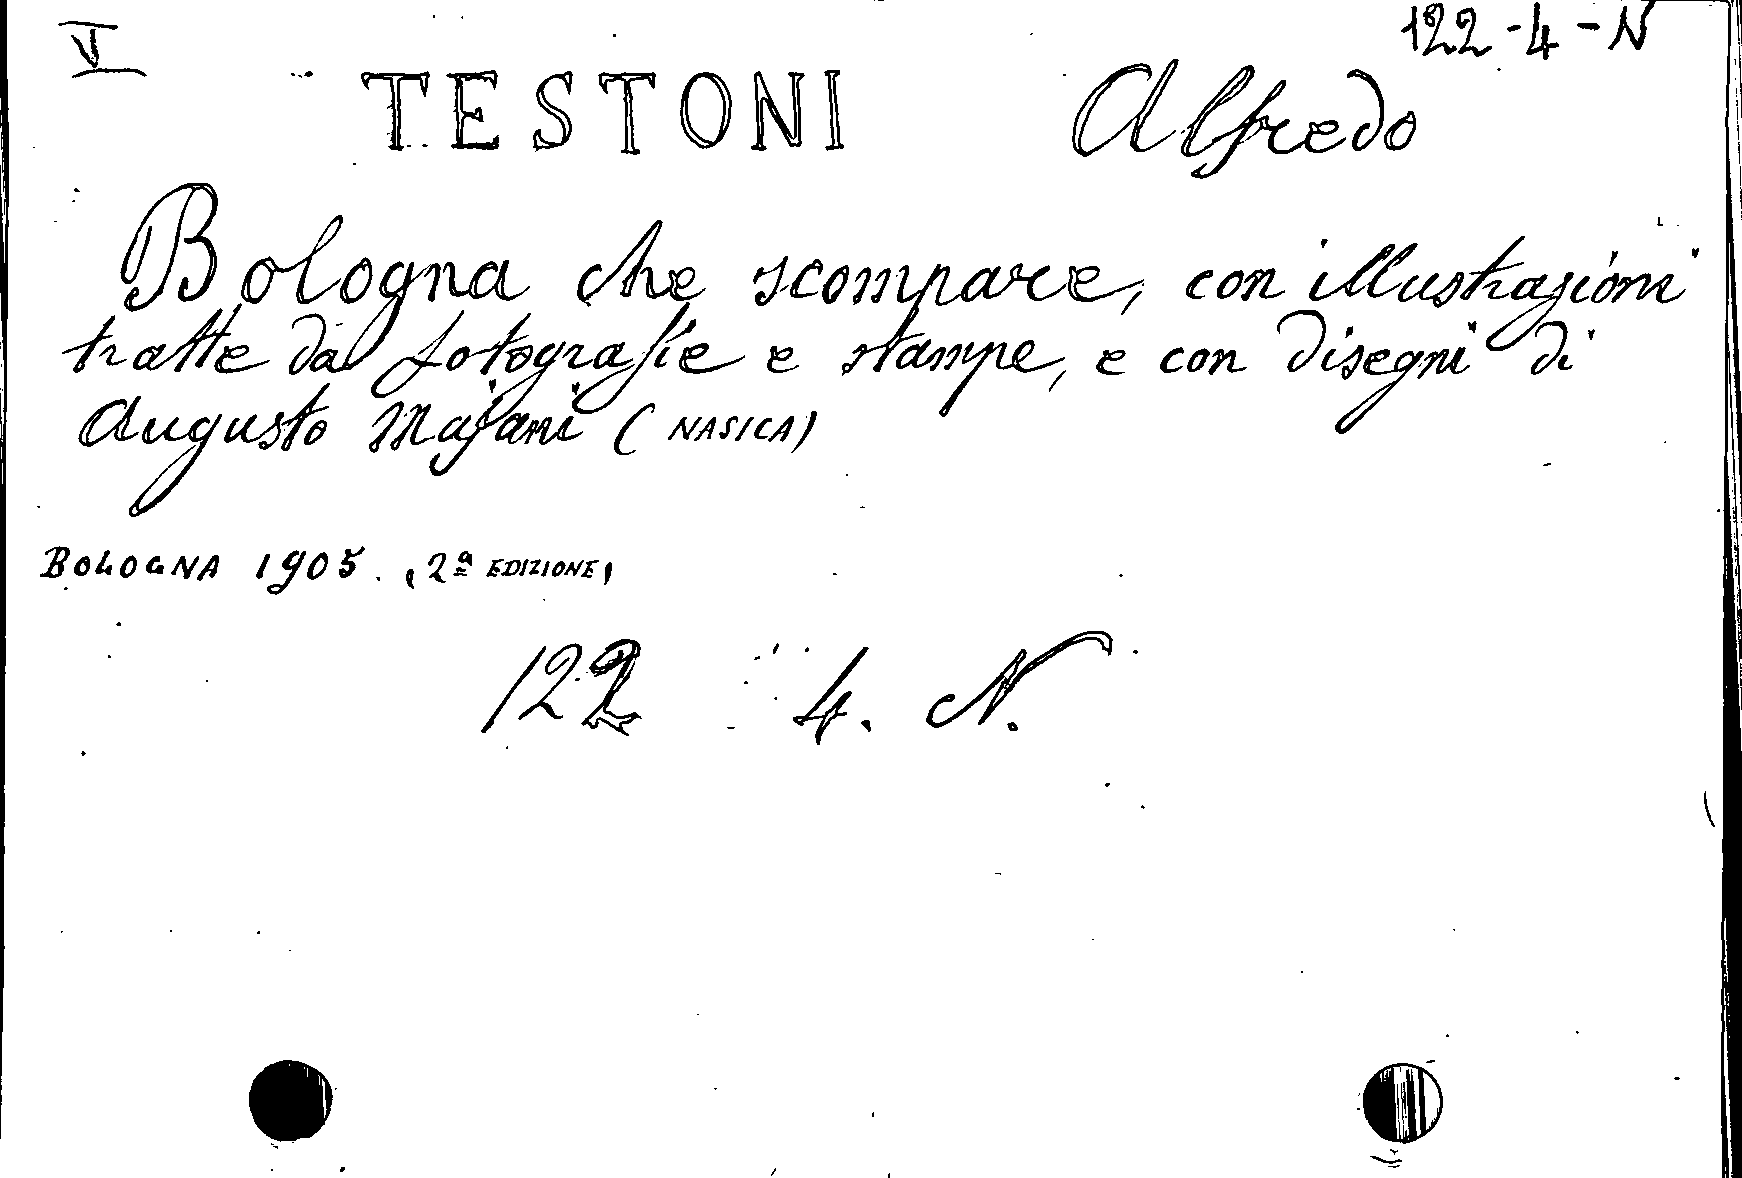 V 122-4-N
TESTONI Alfredo
Bologna che scompare, con illustrazioni
tratte da fotografie e stampe, e con disegni di
Augusto Majani (NASICA)
BOLOGNA 1905. (2ª EDIZIONE)
122 4. N.